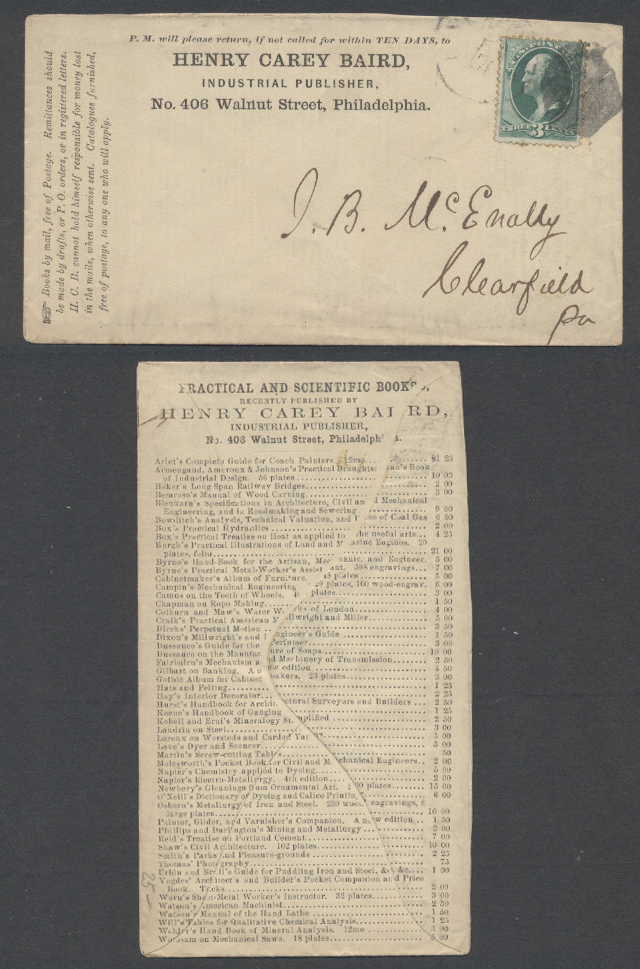 P. M. will please return, if not called for within TEN DAYS, to
HENRY CAREY BAIRD,
INDUSTRIAL PUBLISHER,
No. 406 Walnut Street, Philadelphia.
Books by mail, free of Postage. Remittances should
be made by drafts, or P. O. orders, or in registered letters.
H. C. B. cannot hold himself responsible for money lost
in the mails, when otherwise sent. Catalogues furnished,
free of postage, to any one who will apply.
THREE 3 CENTS
J. B. McEnally
Clearfield
Pa
PRACTICAL AND SCIENTIFIC BOOKS,
RECENTLY PUBLISHED BY
HENRY CAREY BAIRD,
INDUSTRIAL PUBLISHER,
No. 406 Walnut Street, Philadelphia.
Arlot's Complete Guide for Coach Painters 12mo. $1 25
Armengaud, Amoroux & Johnson's Practical Draughtsman's Book
of Industrial Design. 56 plates 10 00
Baker's Long Span Railway Bridges 2 00
Bemrose's Manual of Wood Carving 3 00
Blenkarn's Specifications in Architecture, Civil and Mechanical
Engineering, and in Roadmaking and Sewering 9 00
Bowditch's Analysis, Technical Valuation, and Use of Coal Gas 6 50
Box's Practical Hydraulics 2 00
Box's Practical Treatise on Heat as applied to the useful arts... 4 25
Burgh's Practical Illustrations of Land and Marine Engines. 20
plates, folio 21 00
Byrne's Hand-Book for the Artisan, Mechanic, and Engineer. 5 00
Byrne's Practical Metal-Worker's Assistant. 598 engravings 7 00
Cabinetmaker's Album of Furniture. 48 plates 5 00
Campin's Mechanical Engineering 29 plates, 100 wood-engrav. 6 00
Camus on the Teeth of Wheels. plates 3 00
Chapman on Rope Making 1 50
Colburn and Maw's Water Works of London 4 00
Craik's Practical American Millwright and Miller 5 00
Dircks' Perpetual Motion 3 50
Dixon's Millwright's and Engineer's Guide 1 50
Dussauce's Guide for the Perfumer 3 00
Dussauce on the Manufacture of Soaps 10 00
Fairbairn's Mechanism and Machinery of Transmission 2 50
Gilbart on Banking. A new edition 4 50
Gothic Album for Cabinetmakers. 23 plates 3 00
Hats and Felting 1 25
Hay's Interior Decorator 2 25
Hurst's Handbook for Architectural Surveyors and Builders 2 50
Keene's Handbook of Gauging 1 25
Kobell and Erni's Mineralogy Simplified 2 50
Landrin on Steel 3 00
Laroux on Worsteds and Carded Yarns 5 00
Love's Dyer and Scourer 5 00
Martin's Screw-cutting Tables 50
Molesworth's Pocket Book for Civil and Mechanical Engineers 2 00
Napier's Chemistry applied to Dyeing 5 00
Napier's Electro-Metallurgy. 4th edition 2 00
Newbery's Gleanings from Ornamental Art. 100 plates 15 00
O'Neill's Dictionary of Dyeing and Calico Printing 6 00
Osborn's Metallurgy of Iron and Steel. 230 wood engravings, 6
large plates 10 00
Painter, Gilder, and Varnisher's Companion. A new edition 1 50
Phillips and Darlington's Mining and Metallurgy 2 00
Reid's Treatise on Portland Cement 7 00
Shaw's Civil Architecture. 102 plates 10 00
Smith's Parks and Pleasure-grounds 2 25
Thomas' Photography 75
Urbin and Brull's Guide for Puddling Iron and Steel, &c &c. 1 00
Vogdes' Architect's and Builder's Pocket Companion and Price
Book. Tucks 2 00
Warn's Sheet-Metal Worker's Instructor. 32 plates 3 00
Watson's American Machinist 2 50
Watson's Manual of the Hand Lathe 1 50
Will's Tables for Qualitative Chemical Analysis 1 25
Hand Book of Mineral Analysis. 12mo 3 00
Worssam on Mechanical Saws. 18 plates 5 00
25-